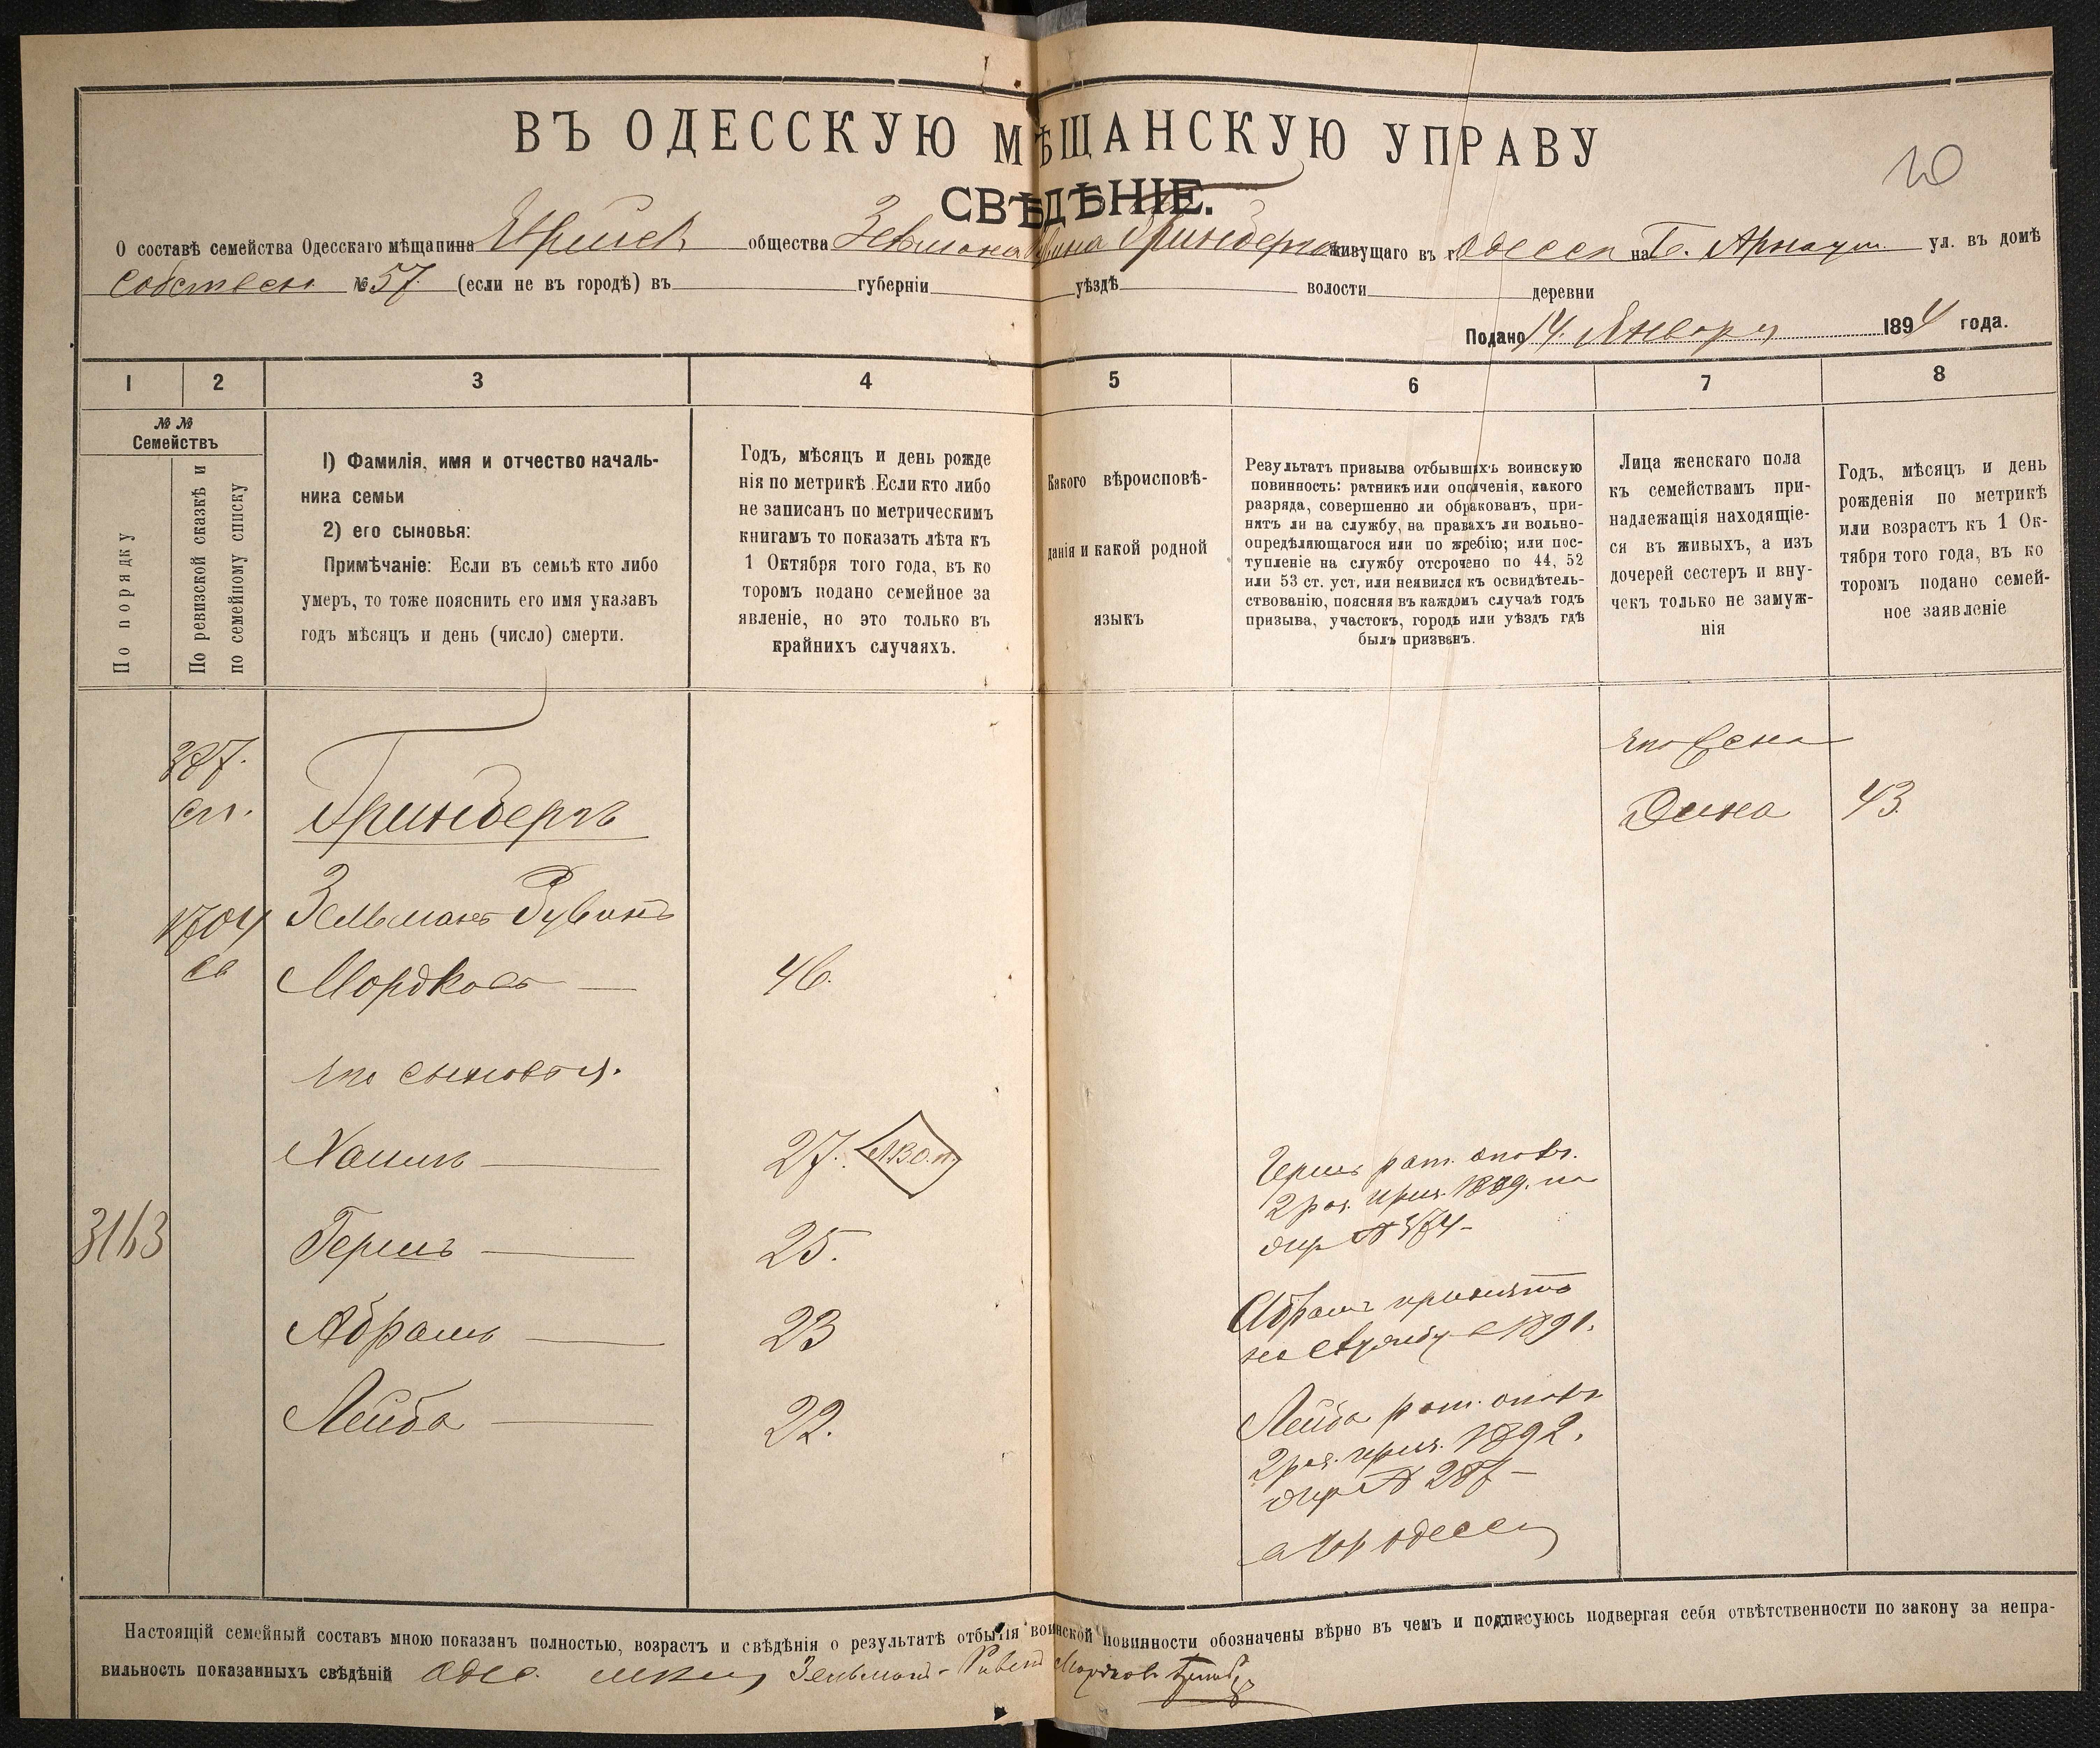 ВЪ ОДЕССКУЮ МѢЩАНСКУЮ УПРАВУ
СВѢДѢНІЕ.
20
О составѣ семейства Одесскаго мѣщанина Еврейск общества Зельмана Рувина Гринберга живущаго въ г. Одессѣ на Б. Арнаут. ул. въ домѣ
Собствен № 57. (если не въ городѣ) въ губерніи уѣздѣ волости деревни
Подано 14. Января 1894 года.
1 2 3 4 5 6 7 8
№ №
Семействъ
По порядку
По ревизской сказкѣ и
по семейному списку
1) Фамилія, имя и отчество началь-
ника семьи
2) его сыновья:
Примѣчаніе: Если въ семьѣ кто либо
умеръ, то тоже пояснить его имя указавъ
годъ мѣсяцъ и день (число) смерти.
Годъ, мѣсяцъ и день рожде
нія по метрикѣ. Если кто либо
не записанъ по метрическимъ
книгамъ то показать лѣта къ
1 Октября того года, въ ко
торомъ подано семейное за
явленіе, но это только въ
крайнихъ случаяхъ.
Какого вѣроисповѣ-
данія и какой родной
языкъ
Результатъ призыва отбывшихъ воинскую
повинность: ратникъ или ополченія, какого
разряда, совершенно ли обракованъ, при-
нятъ ли на службу, на правахъ ли вольно-
опредѣляющагося или по жребію; или пос-
тупленіе на службу отсрочено по 44, 52
или 53 ст. уст. или неявился къ освидѣтель-
ствованію, поясняя въ каждомъ случаѣ годъ
призыва, участокъ, городъ или уѣздъ гдѣ
былъ призванъ.
Лица женскаго пола
къ семействамъ при-
надлежащія находящіе-
ся въ живыхъ, а изъ
дочерей сестеръ и вну-
чекъ только не замуж-
нія
Годъ, мѣсяцъ и день
рожденія по метрикѣ
или возрастъ къ 1 Ок-
тября того года, въ ко
торомъ подано семей-
ное заявленіе
его жена
Дина 43.
сп. Гринбергъ
1704 Зельманъ Рувинъ
Мордковъ 46.
его сыновья.
Хаимъ 27.
3163 Гершъ 25.
Абрамъ 23
Лейба 22.
Гершъ рат. опол.
2 раз. приз. 1889. по
жер № 374
Абрамъ принятъ
на службу в 1891.
Лейба рат. опол
2 раз. приз. 1892.
жер № 287
в гор Одессѣ
Настоящій семейный составъ мною показанъ полностью, возрастъ и свѣдѣнія о результатѣ отбытія воинской повинности обозначены вѣрно въ чемъ и подписуюсь подвергая себя отвѣтственности по закону за непра-
вильность показанныхъ свѣдѣній Одес. мѣщ Зельманъ-Рувинъ Мордковъ